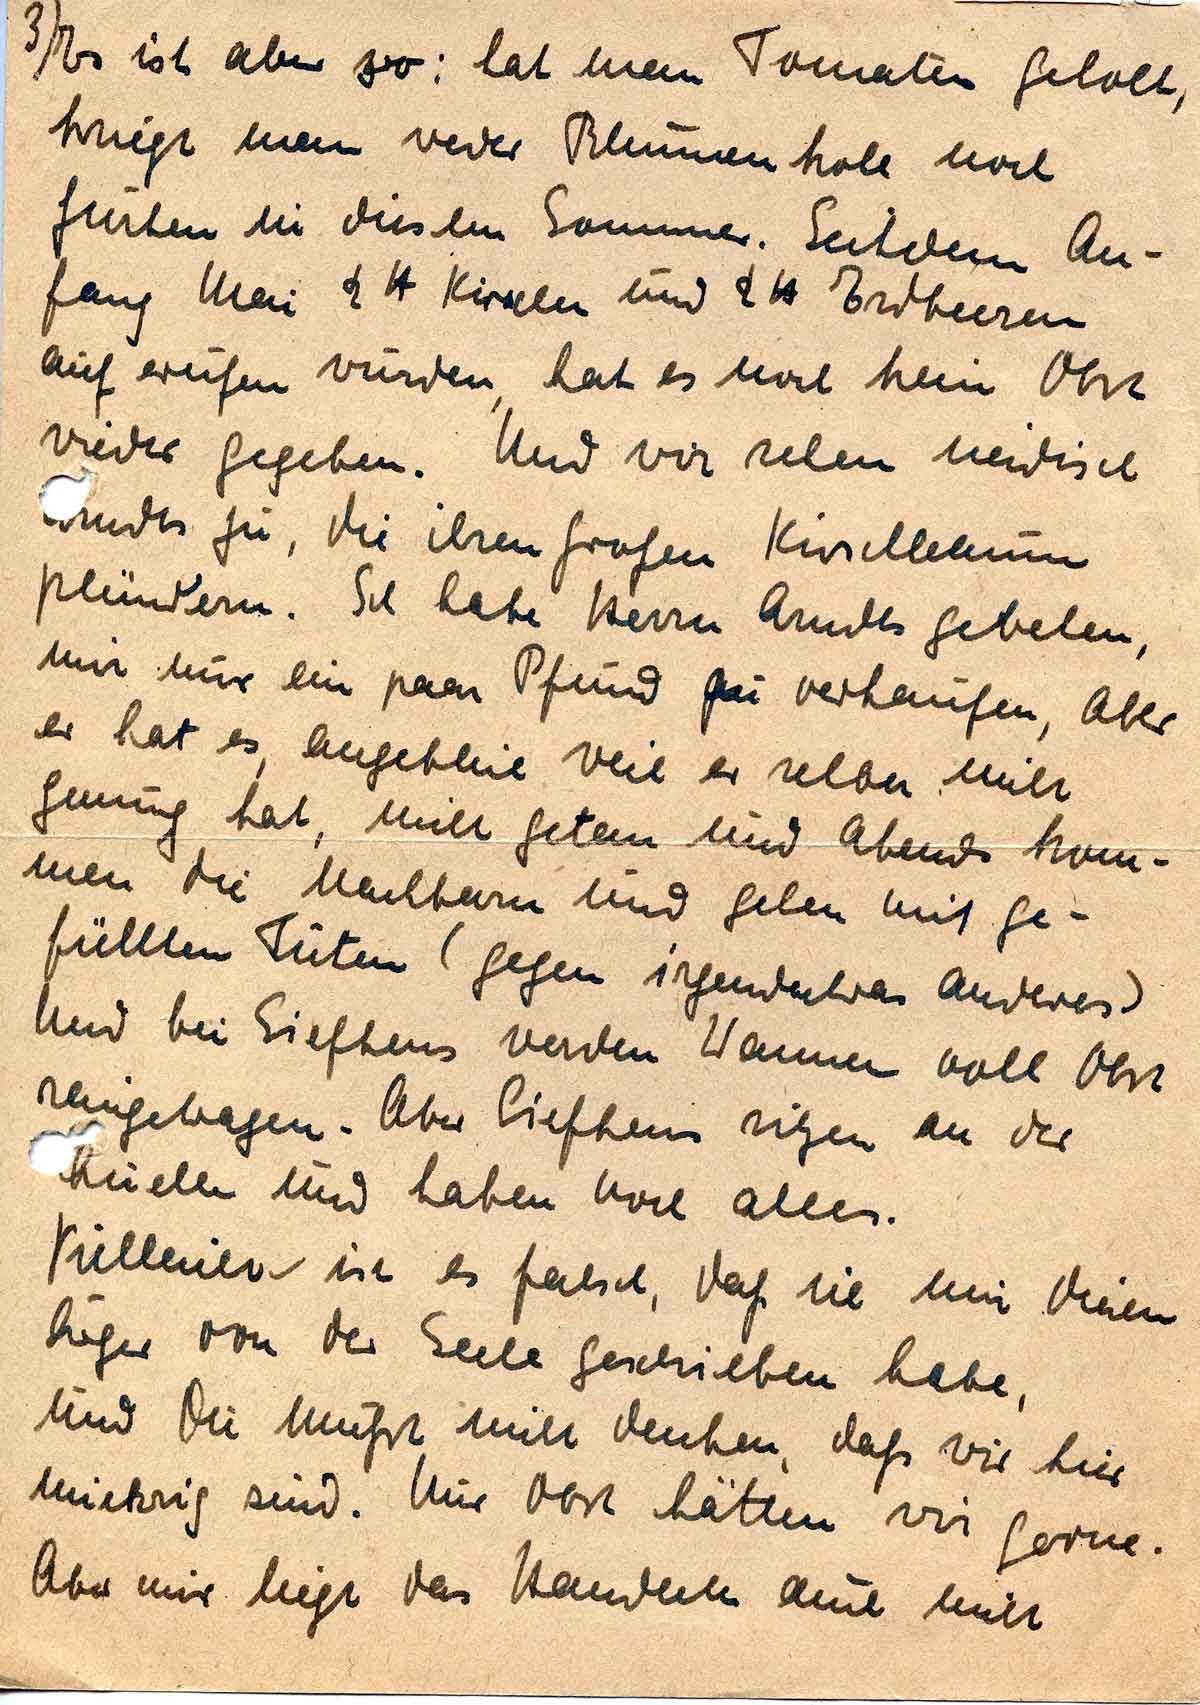 3) Es ist aber so: hat man Tomaten geholt,
kriegt man weder Blumenkohl noch
Gurken in diesem Sommer. Seitdem An-
fang Mai ½ ℔ Kirschen und ½ ℔ Erdbeeren
aufgerufen wurden, hat es noch kein Obst
wieder gegeben. Und wir sehen neidisch
Arndts zu, die ihren großen Kirschbaum
plündern. Ich habe Herrn Arndts gebeten,
mir nur ein paar Pfund zu verkaufen, aber
er hat es, angeblich weil er selber nicht
genug hat, nicht getan und Abends kom-
men die Nachbarn und gehen mit ge-
füllten Tüten (gegen irgendetwas anderes)
Und bei Siefkens werden Wannen voll Obst
reingetragen. Aber Siefkens sitzen an der
Quelle und haben wohl alles.
Vielleicht ist es falsch, daß ich mir diesen
Ärger von der Seele geschrieben habe,
und Du mußt nicht denken, daß wir hier
mickrig sind. Nur Obst hätten wir gerne.
Aber mir liegt das Handeln auch nicht